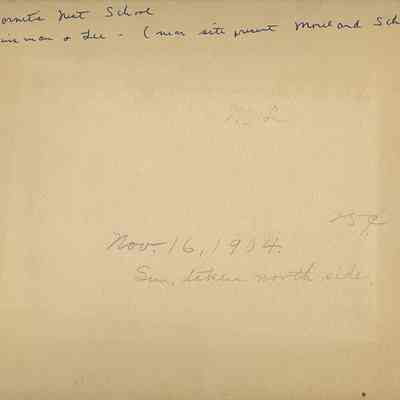 ornets Nest School
inman & Lee - (near site present Moreland Sch
25¢
Nov. 16, 1904.
Sun, taken north side.